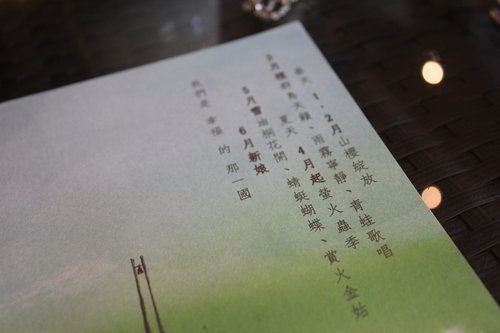 春天 1、2月山櫻綻放
3月裡群鳥天籟、雨霧寧靜、青蛙歌唱
夏天 4月起螢火蟲季
5月雪油桐花開、蜻蜓蝴蝶、賞火金姑
6月新娘
我們是 幸福 的 那一國